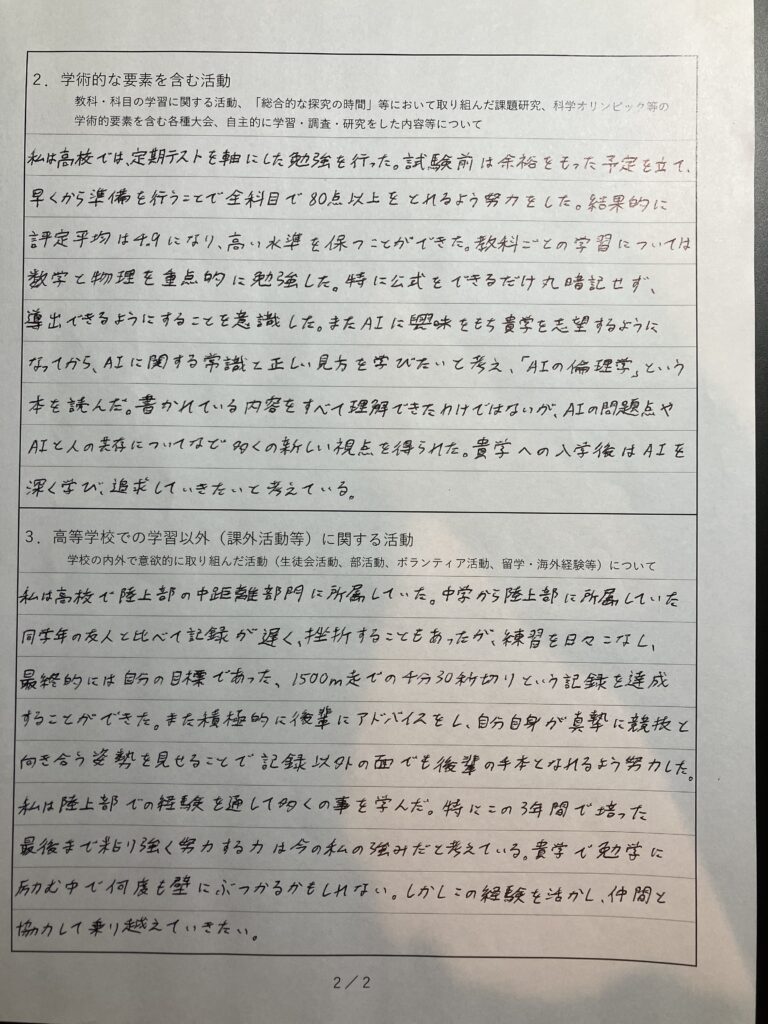 2．学術的な要素を含む活動
教科・科目の学習に関する活動、「総合的な探究の時間」等において取り組んだ課題研究、科学オリンピック等の
学術的要素を含む各種大会、自主的に学習・調査・研究をした内容等について
私は高校では、定期テストを軸にした勉強を行った。試験前は余裕をもった予定を立て、
早くから準備を行うことで全科目で80点以上をとれるよう努力をした。結果的に
評定平均は4.9になり、高い水準を保つことができた。教科ごとの学習については
数学と物理を重点的に勉強した。特に公式をできるだけ丸暗記せず、
導出できるようにすることを意識した。またAIに興味をもち貴学を志望するように
なってから、AIに関する常識と正しい見方を学びたいと考え、「AIの倫理学」という
本を読んだ。書かれている内容をすべて理解できたわけではないが、AIの問題点や
AIと人の共存についてなで多くの新しい視点を得られた。貴学への入学後はAIを
深く学び、追求していきたいと考えている。
3．高等学校での学習以外（課外活動等）に関する活動
学校の内外で意欲的に取り組んだ活動（生徒会活動、部活動、ボランティア活動、留学・海外経験等）について
私は高校で陸上部の中距離部門に所属していた。中学から陸上部に所属していた
同学年の友人と比べて記録が遅く、挫折することもあったが、練習を日々こなし、
最終的には自分の目標であった、1500m走での4分30秒切りという記録を達成
することができた。また積極的に後輩にアドバイスをし、自分自身が真摯に競技と
向き合う姿勢を見せることで記録以外の面でも後輩の手本となれるよう努力した。
私は陸上部での経験を通して多くの事を学んだ。特にこの3年間で培った
最後まで粘り強く努力する力は今の私の強みだと考えている。貴学で勉学に
励む中で何度も壁にぶつかるかもしれない。しかしこの経験を活かし、仲間と
協力して乗り越えていきたい。
2／2